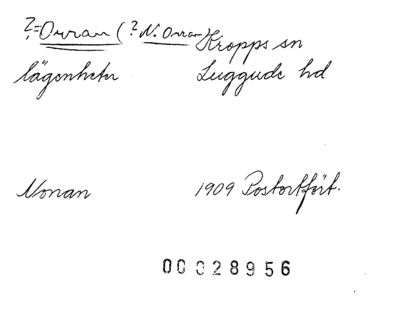 ?=Orran (?N. Orran) Kropps sn
lägenheter Luggude hd
Norran 1909 Postortför.
00028956